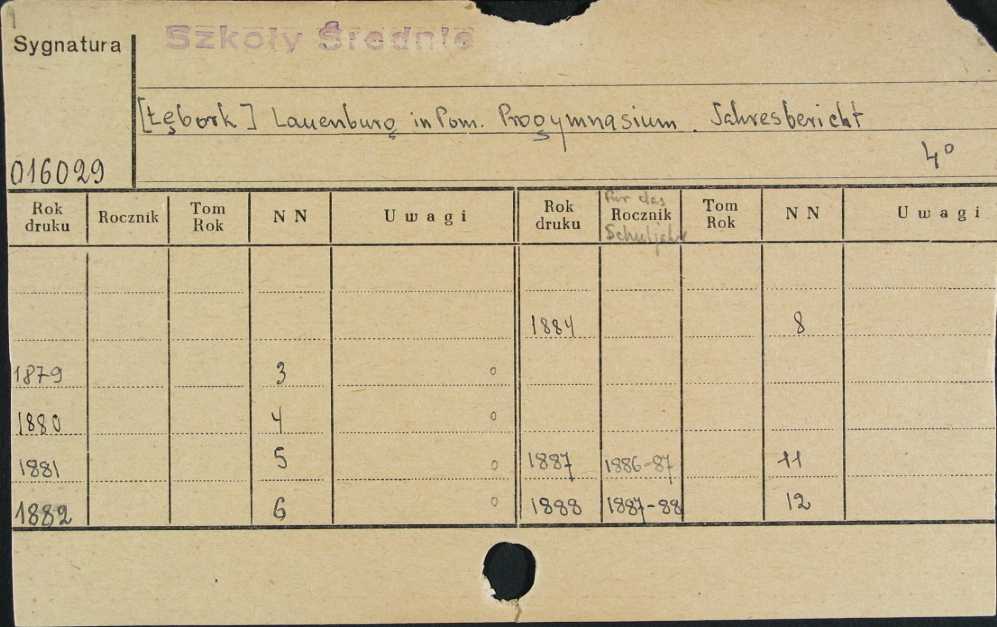 Sygnatura
Szkoły Średnie
[Łębork] Lauenburg in Pom. Progymnasium. Jahresbericht
4°
016029
Rok druku Rocznik Tom Rok NN Uwagi Rok druku für das Rocznik Schuljahr Tom Rok NN Uwagi
1884 8
1879 3 o
1880 4 o
1881 5 o 1887 1886-87 11
1882 6 o 1888 1887-88 12